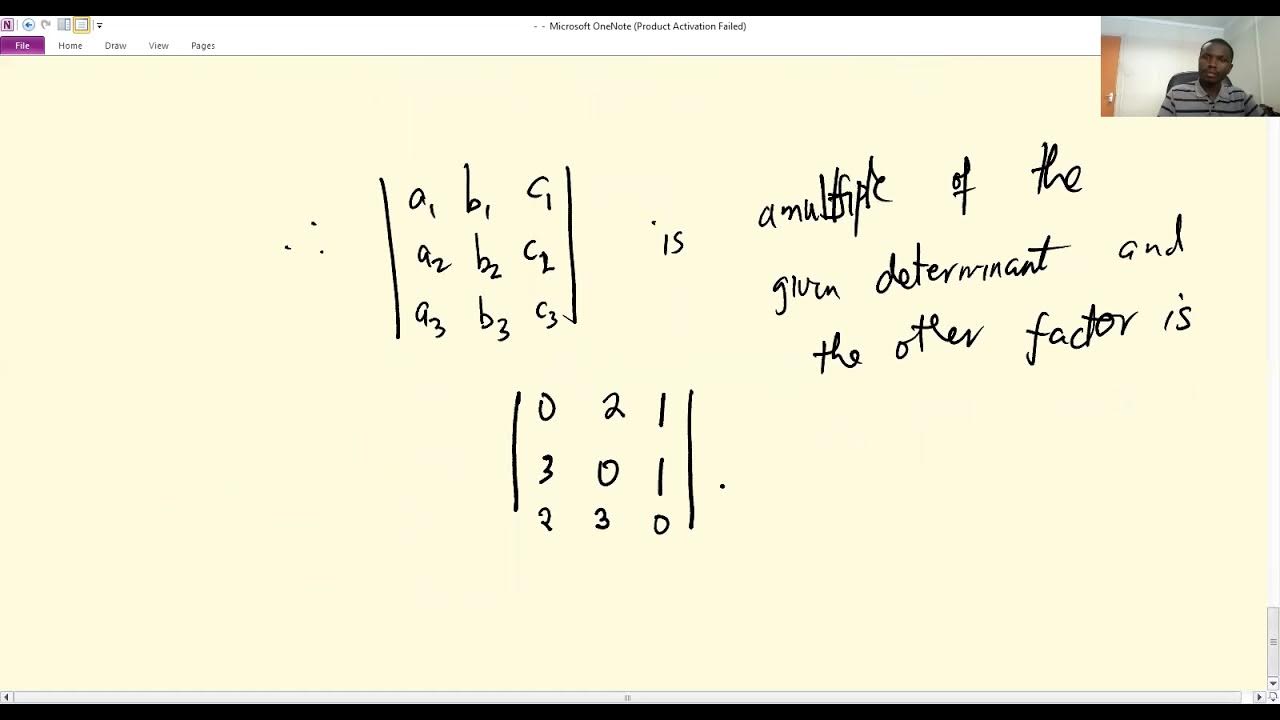 - - Microsoft OneNote (Product Activation Failed)
File Home Draw View Pages
∴ | a₁ b₁ c₁ | is a multiple of the
| a₂ b₂ c₂ | given determinant and
| a₃ b₃ c₃ | the other factor is
| 0 2 1 |
| 3 0 1 | .
| 2 3 0 |